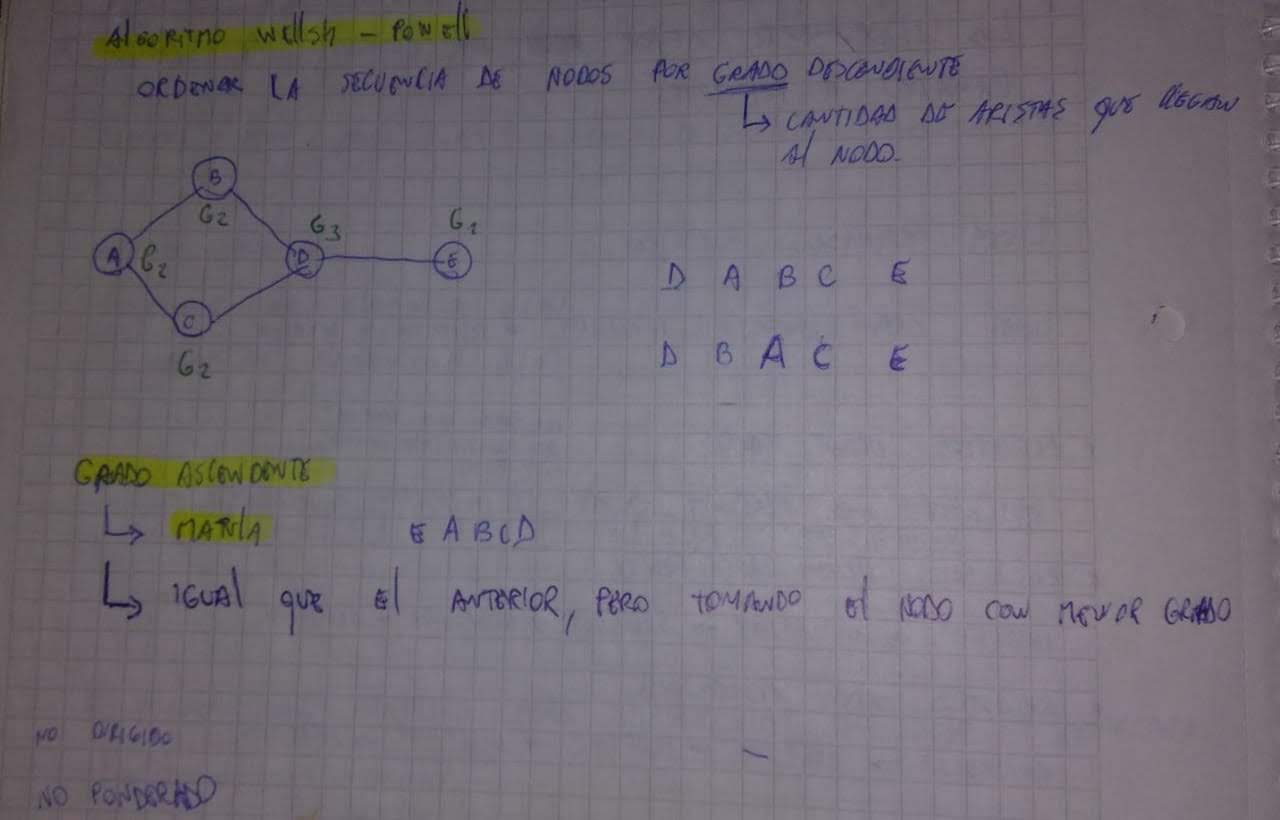 Algoritmo Wellsh - Powell
ORDENAR LA SECUENCIA DE NODOS POR GRADO DESCENDIENTE
↳ CANTIDAD DE ARISTAS QUE LLEGAN
Al NODO.
B
G2
G3
G1
A
G2
D
E
C
G2
D A B C E
D B A C E
GRADO ASCENDENTE
↳ MATULA E A B C D
↳ IGUAl QUE El ANTERIOR, PERO TOMANDO El NODO CON MENOR GRADO
NO DIRIGIDO
NO PONDERADO